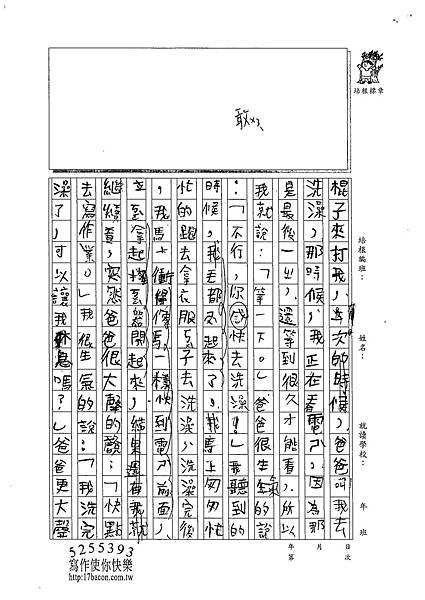 培根標章
敢
培根編班：
姓名：
就讀學校：
年 班
棍子來打我，這次的時候，爸爸叫我去
洗澡，那時候，我正在看電，因為那
是最後一，還等到很久才能看，所以
我就說：「等一下。」爸爸很生氣的說
：「不行，你快去洗澡！」我聽到的
時候，我毛都起來了，我馬上匆匆忙
忙的跑去拿衣服子去洗澡，洗澡完後
，我馬上衝，像馬一樣快到電前面，
立拿起器開起來，結果還有，就
繼續看，突然爸爸很大聲的說：「快點
去寫作業。」我很生氣的說：「我洗完
澡了，可以讓我休息嗎？」爸爸更大聲
年 月 日
第 次
5255393
寫作使你快樂
http://17bacon.com.tw